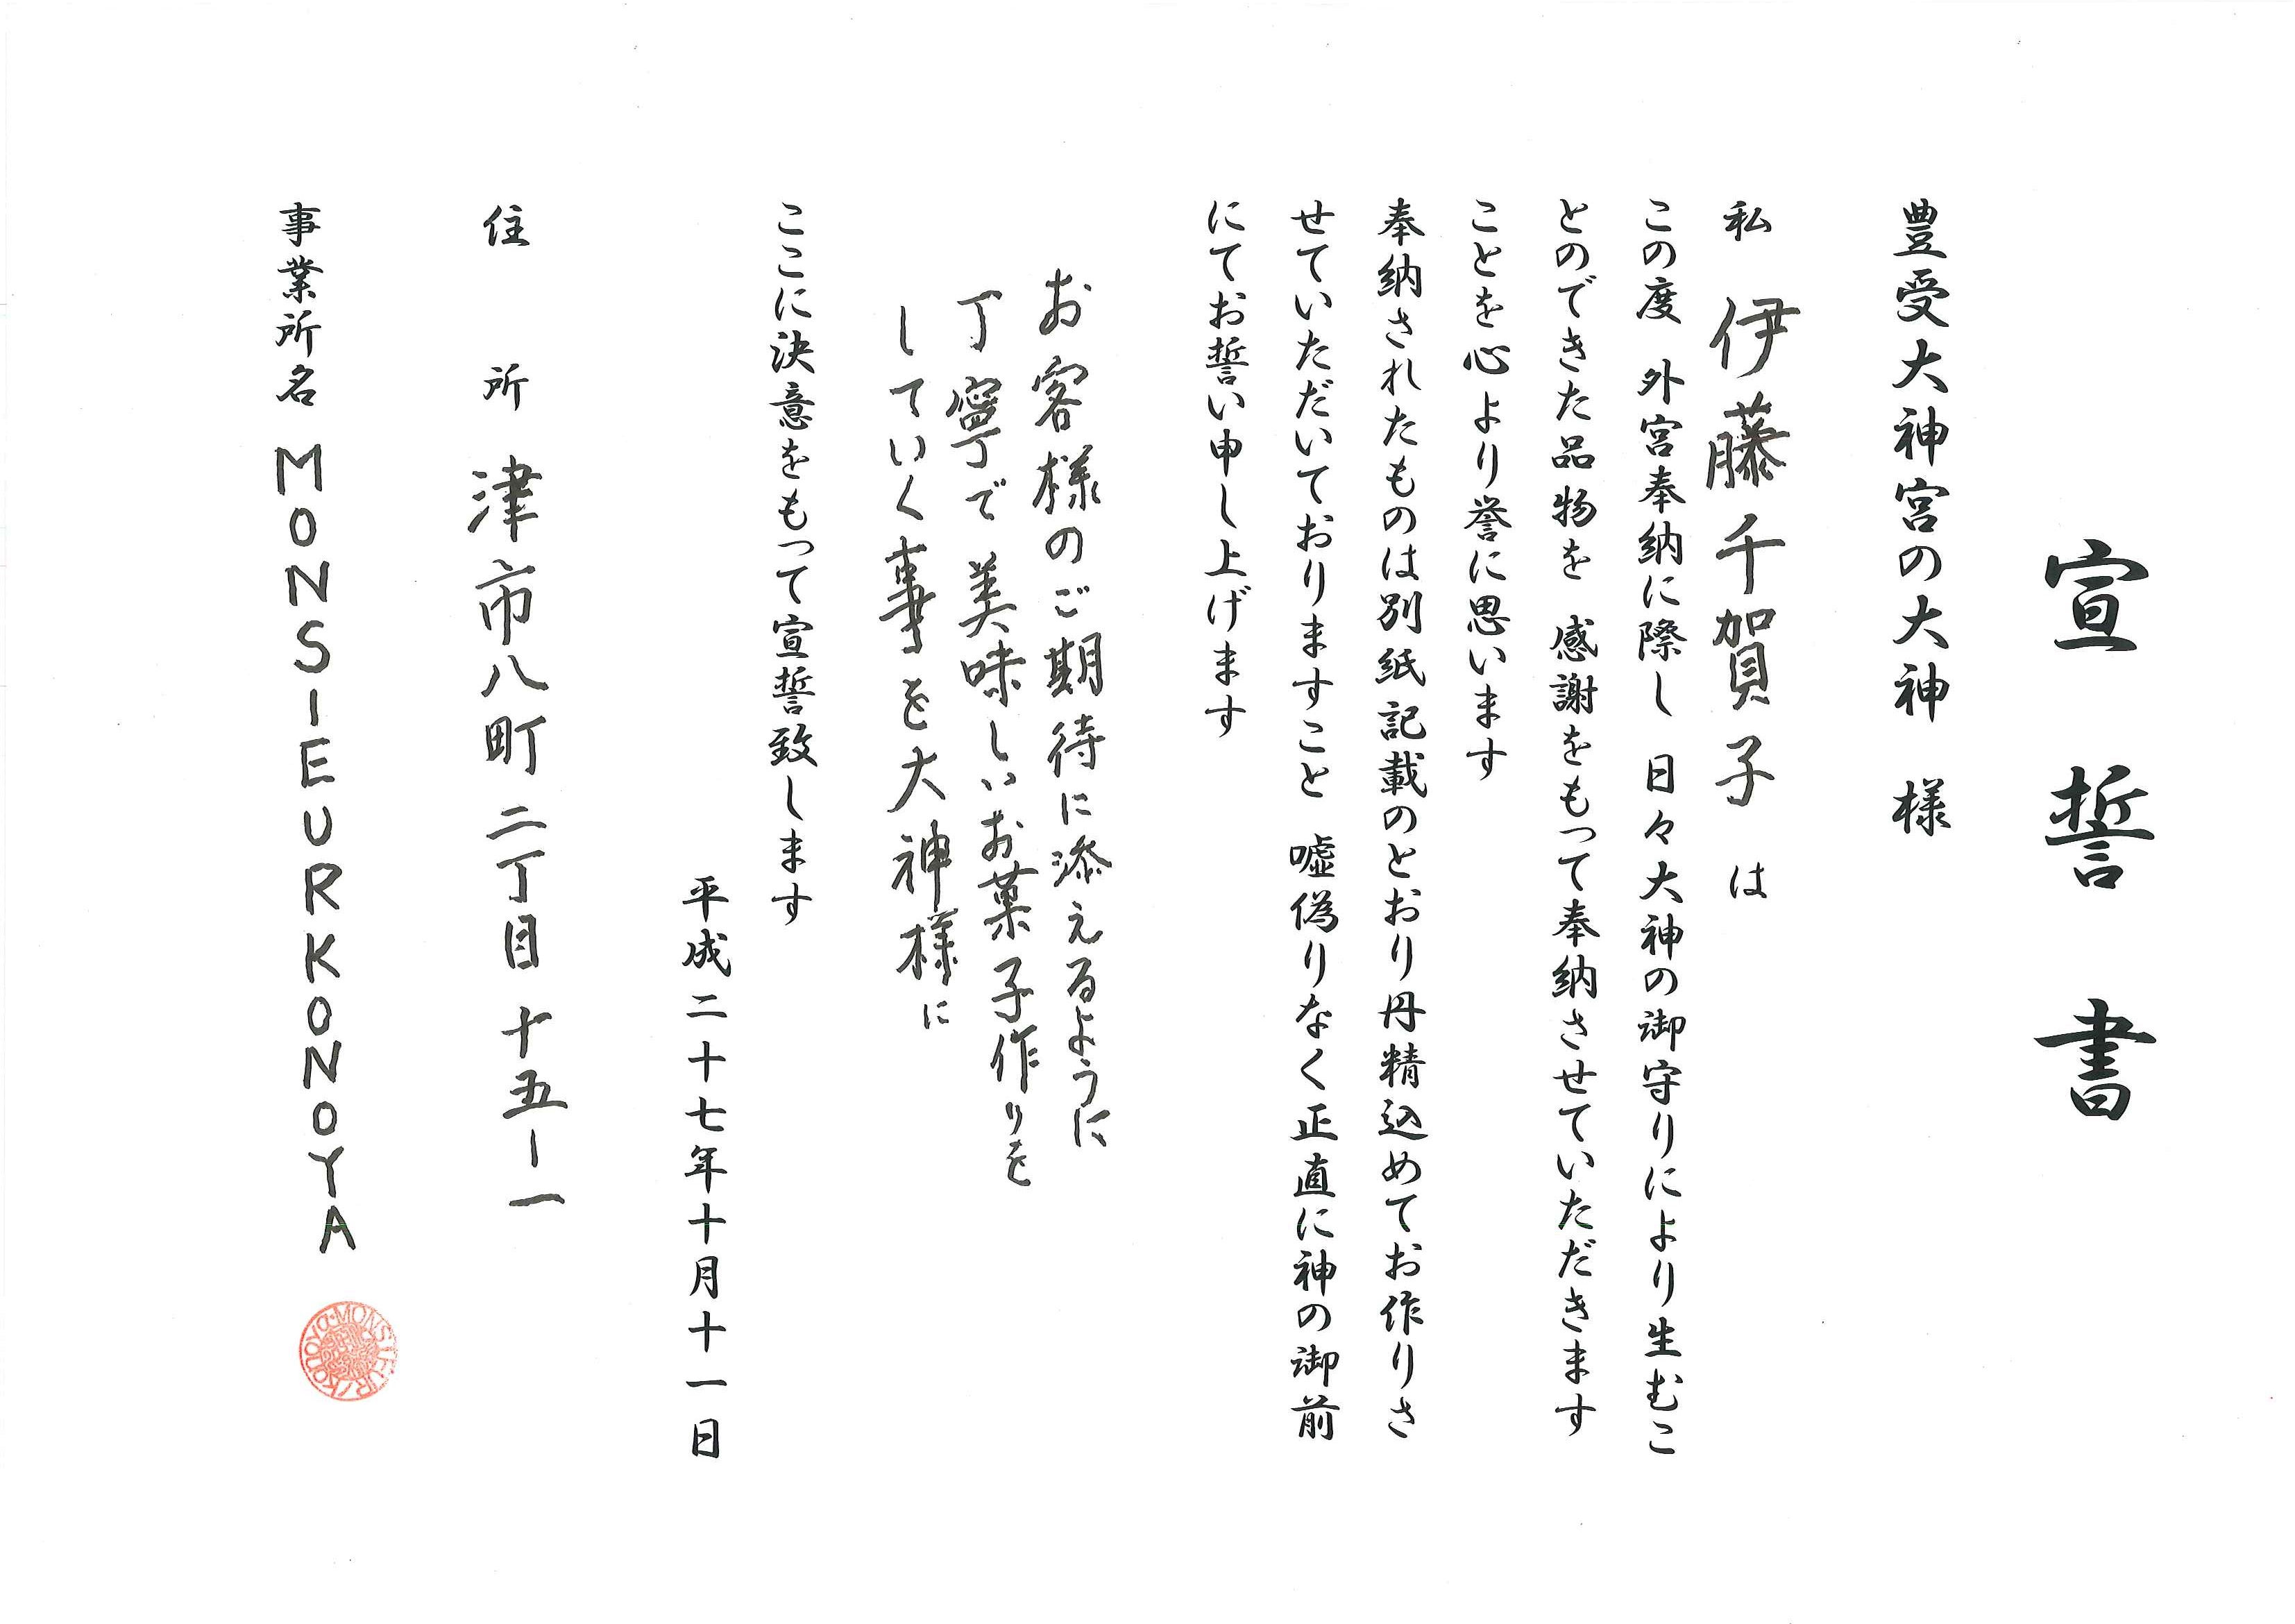 宣誓書
豊受大神宮の大神 様
私 伊藤千賀子 は
この度 外宮奉納に際し 日々大神の御守りにより生むこ
とのできた品物を 感謝をもって奉納させていただきます
ことを心より誉に思います
奉納されたものは別紙記載のとおり丹精込めてお作りさ
せていただいておりますこと 嘘偽りなく正直に神の御前
にてお誓い申し上げます
お客様のご期待に添えるように
丁寧で美味しいお菓子作りを
していく事を大神様に
ここに決意をもって宣誓致します
平成二十七年十月十一日
住 所 津市八町二丁目十五ー一
事業所名 MONSIEURKONOYA
MONSIEUR KONOYA